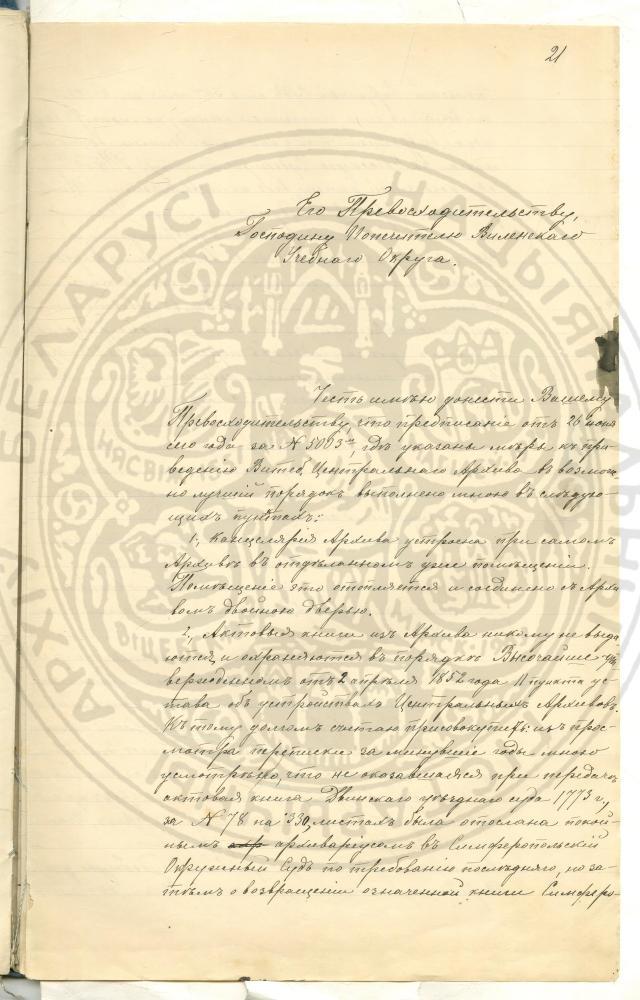 21
Его Превосходительству,
Господину Попечителю Виленскаго
Учебнаго Округа.
Честь имѣю донести Вашему
Превосходительству, что предписаніе отъ 26 іюня
сего года за № 5003, гдѣ указаны мѣры къ при-
веденію Витеб. Центральнаго Архива въ возмож-
но лучшій порядокъ выполнено мною въ слѣдую-
щихъ пунктахъ:
1., Канцелярія Архива устроена при самомъ
Архивѣ въ отдѣланномъ уже помѣщеніи.
Помѣщеніе это отопляется и соединено съ Архи-
вомъ двойною дверью.
2., Актовыя книги изъ Архива никому не выда-
ются, и охраняются въ порядкѣ Высочайше ут-
вержденномъ отъ 2 апрѣля 1852 года 11 пункта ус-
тава объ устройствахъ Центральныхъ Архивовъ.
Къ тому долгомъ считаю присовокупить: изъ прос-
мотра переписки за минувшіе годы мною
усмотрѣно, что не оказавшаяся при передачѣ
актовая книга Двинскаго уѣзднаго суда 1773 г.,
за № 78 на 330 листахъ была отослана покой-
нымъ архиваріусомъ въ Симферопольскій
Окружный Судъ по требованію послѣдняго, но за-
тѣмъ о возвращеніи означенной книги Симферо-